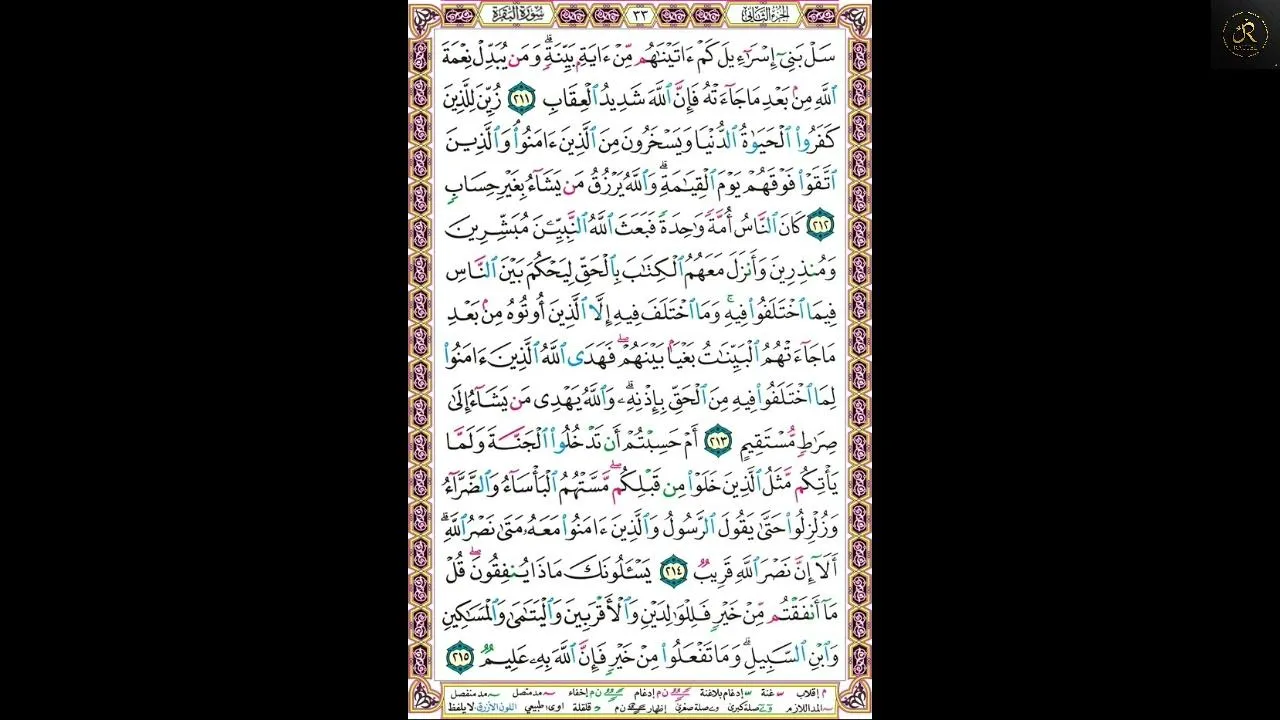 الجزء الثاني ٣٣ سورة البقرة
سَلْ بَنِىٓ إِسْرَٰٓءِيلَ كَمْ ءَاتَيْنَٰهُم مِّنْ ءَايَةٍۭ بَيِّنَةٍۗ وَمَن يُبَدِّلْ نِعْمَةَ
ٱللَّهِ مِنۢ بَعْدِ مَا جَآءَتْهُ فَإِنَّ ٱللَّهَ شَدِيدُ ٱلْعِقَابِ ٢١١ زُيِّنَ لِلَّذِينَ
كَفَرُوا۟ ٱلْحَيَوٰةُ ٱلدُّنْيَا وَيَسْخَرُونَ مِنَ ٱلَّذِينَ ءَامَنُوا۟ۘ وَٱلَّذِينَ
ٱتَّقَوْا۟ فَوْقَهُمْ يَوْمَ ٱلْقِيَٰمَةِۗ وَٱللَّهُ يَرْزُقُ مَن يَشَآءُ بِغَيْرِ حِسَابٍ
٢١٢ كَانَ ٱلنَّاسُ أُمَّةً وَٰحِدَةً فَبَعَثَ ٱللَّهُ ٱلنَّبِيِّـۧنَ مُبَشِّرِينَ
وَمُنذِرِينَ وَأَنزَلَ مَعَهُمُ ٱلْكِتَٰبَ بِٱلْحَقِّ لِيَحْكُمَ بَيْنَ ٱلنَّاسِ
فِيمَا ٱخْتَلَفُوا۟ فِيهِۚ وَمَا ٱخْتَلَفَ فِيهِ إِلَّا ٱلَّذِينَ أُوتُوهُ مِنۢ بَعْدِ
مَا جَآءَتْهُمُ ٱلْبَيِّنَٰتُ بَغْيًۢا بَيْنَهُمْۖ فَهَدَى ٱللَّهُ ٱلَّذِينَ ءَامَنُوا۟
لِمَا ٱخْتَلَفُوا۟ فِيهِ مِنَ ٱلْحَقِّ بِإِذْنِهِۦۗ وَٱللَّهُ يَهْدِى مَن يَشَآءُ إِلَىٰ
صِرَٰطٍ مُّسْتَقِيمٍ ٢١٣ أَمْ حَسِبْتُمْ أَن تَدْخُلُوا۟ ٱلْجَنَّةَ وَلَمَّا
يَأْتِكُم مَّثَلُ ٱلَّذِينَ خَلَوْا۟ مِن قَبْلِكُمۖ مَّسَّتْهُمُ ٱلْبَأْسَآءُ وَٱلضَّرَّآءُ
وَزُلْزِلُوا۟ حَتَّىٰ يَقُولَ ٱلرَّسُولُ وَٱلَّذِينَ ءَامَنُوا۟ مَعَهُۥ مَتَىٰ نَصْرُ ٱللَّهِۗ
أَلَآ إِنَّ نَصْرَ ٱللَّهِ قَرِيبٌ ٢١٤ يَسْـَٔلُونَكَ مَاذَا يُنفِقُونَۖ قُلْ
مَآ أَنفَقْتُم مِّنْ خَيْرٍ فَلِلْوَٰلِدَيْنِ وَٱلْأَقْرَبِينَ وَٱلْيَتَٰمَىٰ وَٱلْمَسَٰكِينِ
وَٱبْنِ ٱلسَّبِيلِۗ وَمَا تَفْعَلُوا۟ مِنْ خَيْرٍ فَإِنَّ ٱللَّهَ بِهِۦ عَلِيمٌ ٢١٥
م إقلاب غنة إدغام بلاغنة ن م إدغام ن م إخفاء مد متصل مد منفصل
المد اللازم صلة كبرى صلة صغرى إظهار ن م قلقلة اوى طبيعي اللون الأزرق لا يلفظ